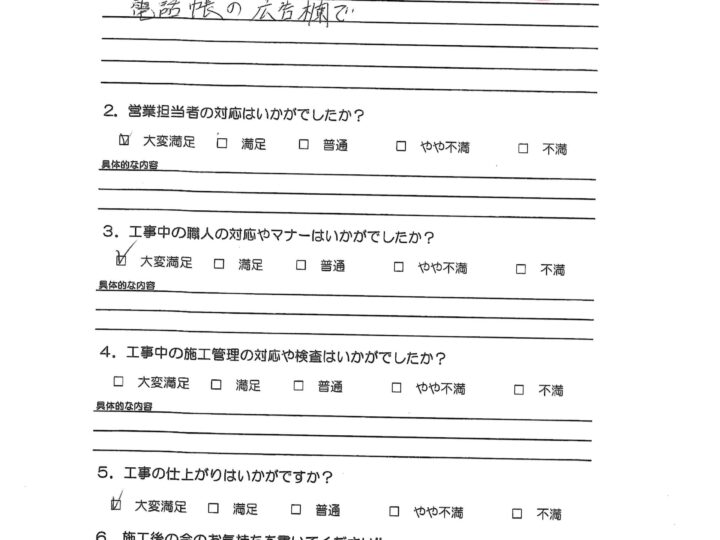 電話帳の広告欄で
2. 営業担当者の対応はいかがでしたか？
☑ 大変満足 □ 満足 □ 普通 □ やや不満 □ 不満
具体的な内容
3. 工事中の職人の対応やマナーはいかがでしたか？
☑ 大変満足 □ 満足 □ 普通 □ やや不満 □ 不満
具体的な内容
4. 工事中の施工管理の対応や検査はいかがでしたか？
□ 大変満足 □ 満足 □ 普通 □ やや不満 □ 不満
具体的な内容
5. 工事の仕上がりはいかがですか？
☑ 大変満足 □ 満足 □ 普通 □ やや不満 □ 不満
6. 施工後の今のお気持ちを書いてください!!